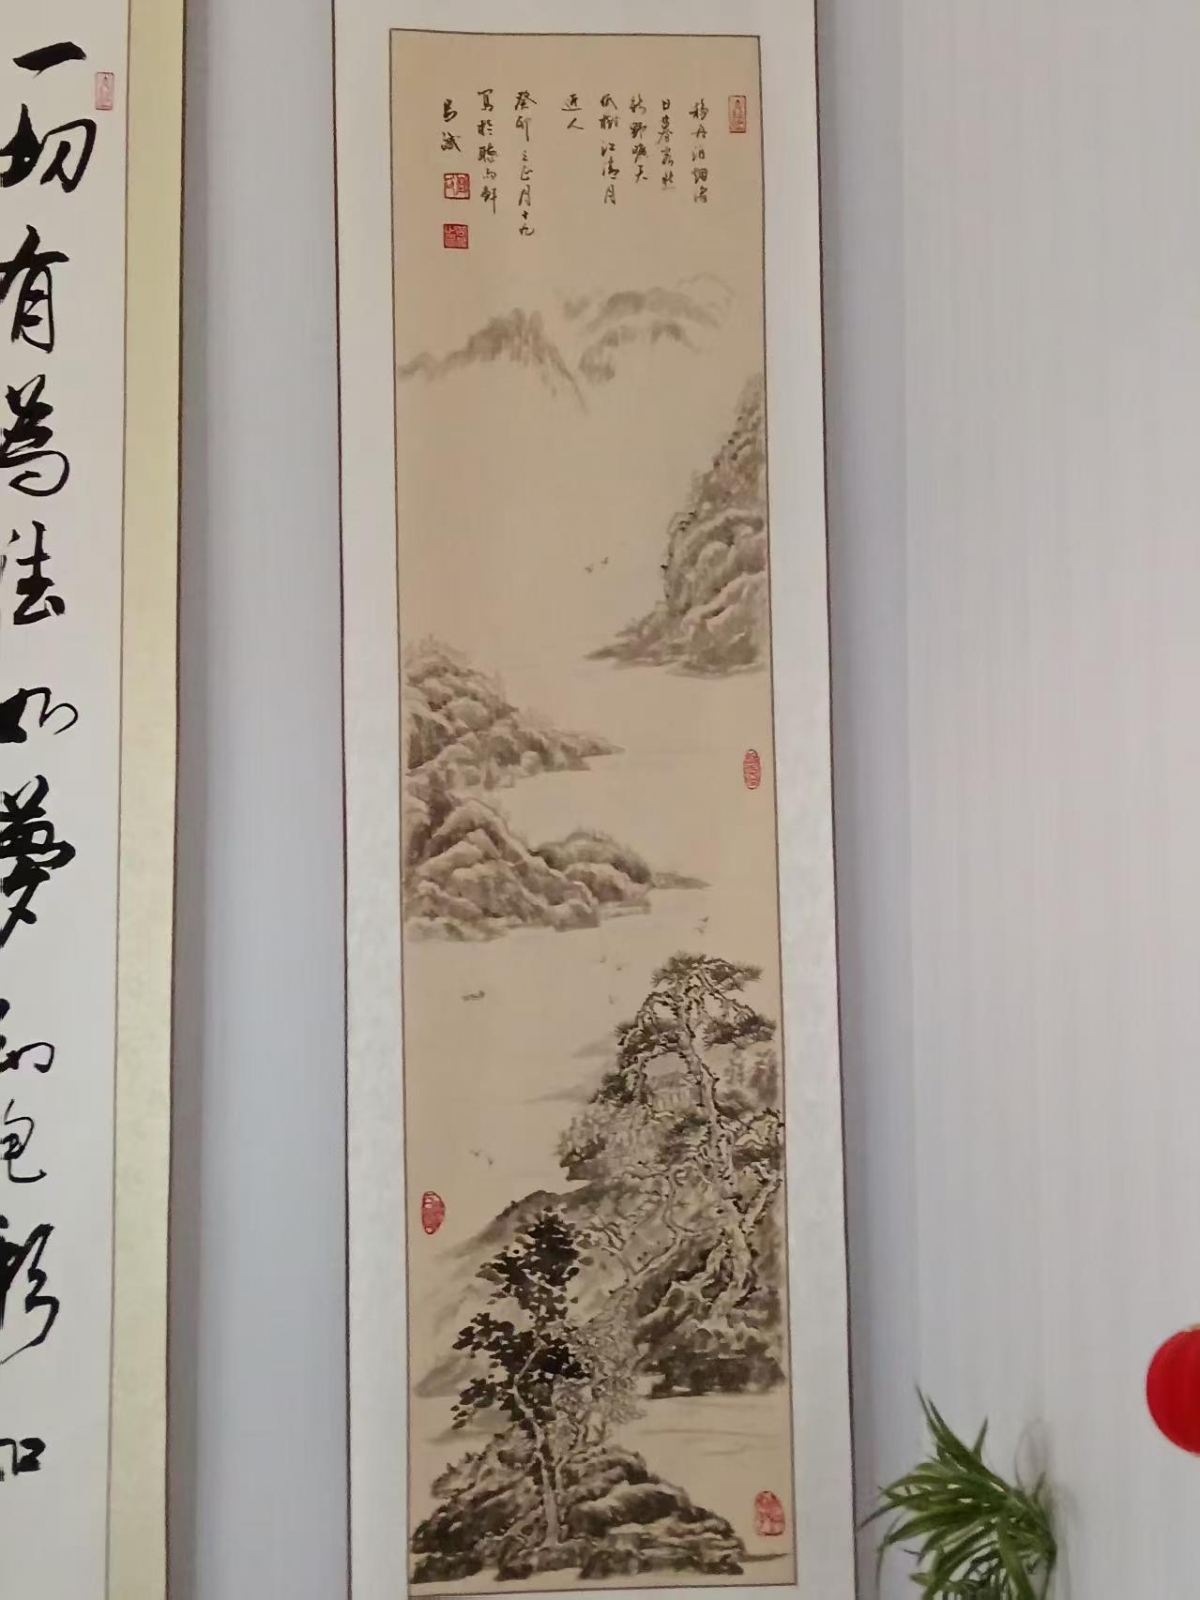 移舟泊烟渚
日暮客愁
新野曠天
低樹江清月
近人
癸卯之正月十九
寫於聽雨軒
一切有為法如夢幻泡影如